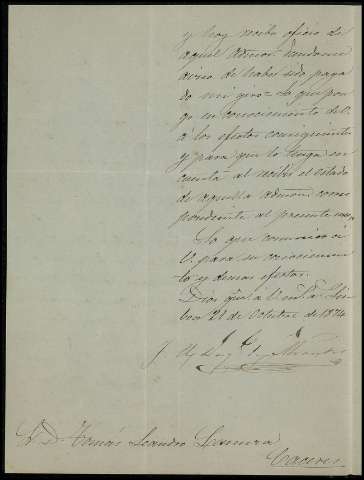 y hoy recibo oficio de
aquel Admor. dandome
aviso de haber sido paga
do mi giro = Lo que pon
go en conocimiento de V.
a los efectos consiguientes
y para que lo tenga en
cuenta al recibir el estado
de aquella admon. corres
pondiente al presente mes,,
Lo que comunico á
V. para su conocimien
to y demas efectos.
Dios gue. á V. m. a. Lis
boa 21 de Octubre de 1874
S. D. Tomás Leandro
Caceres.